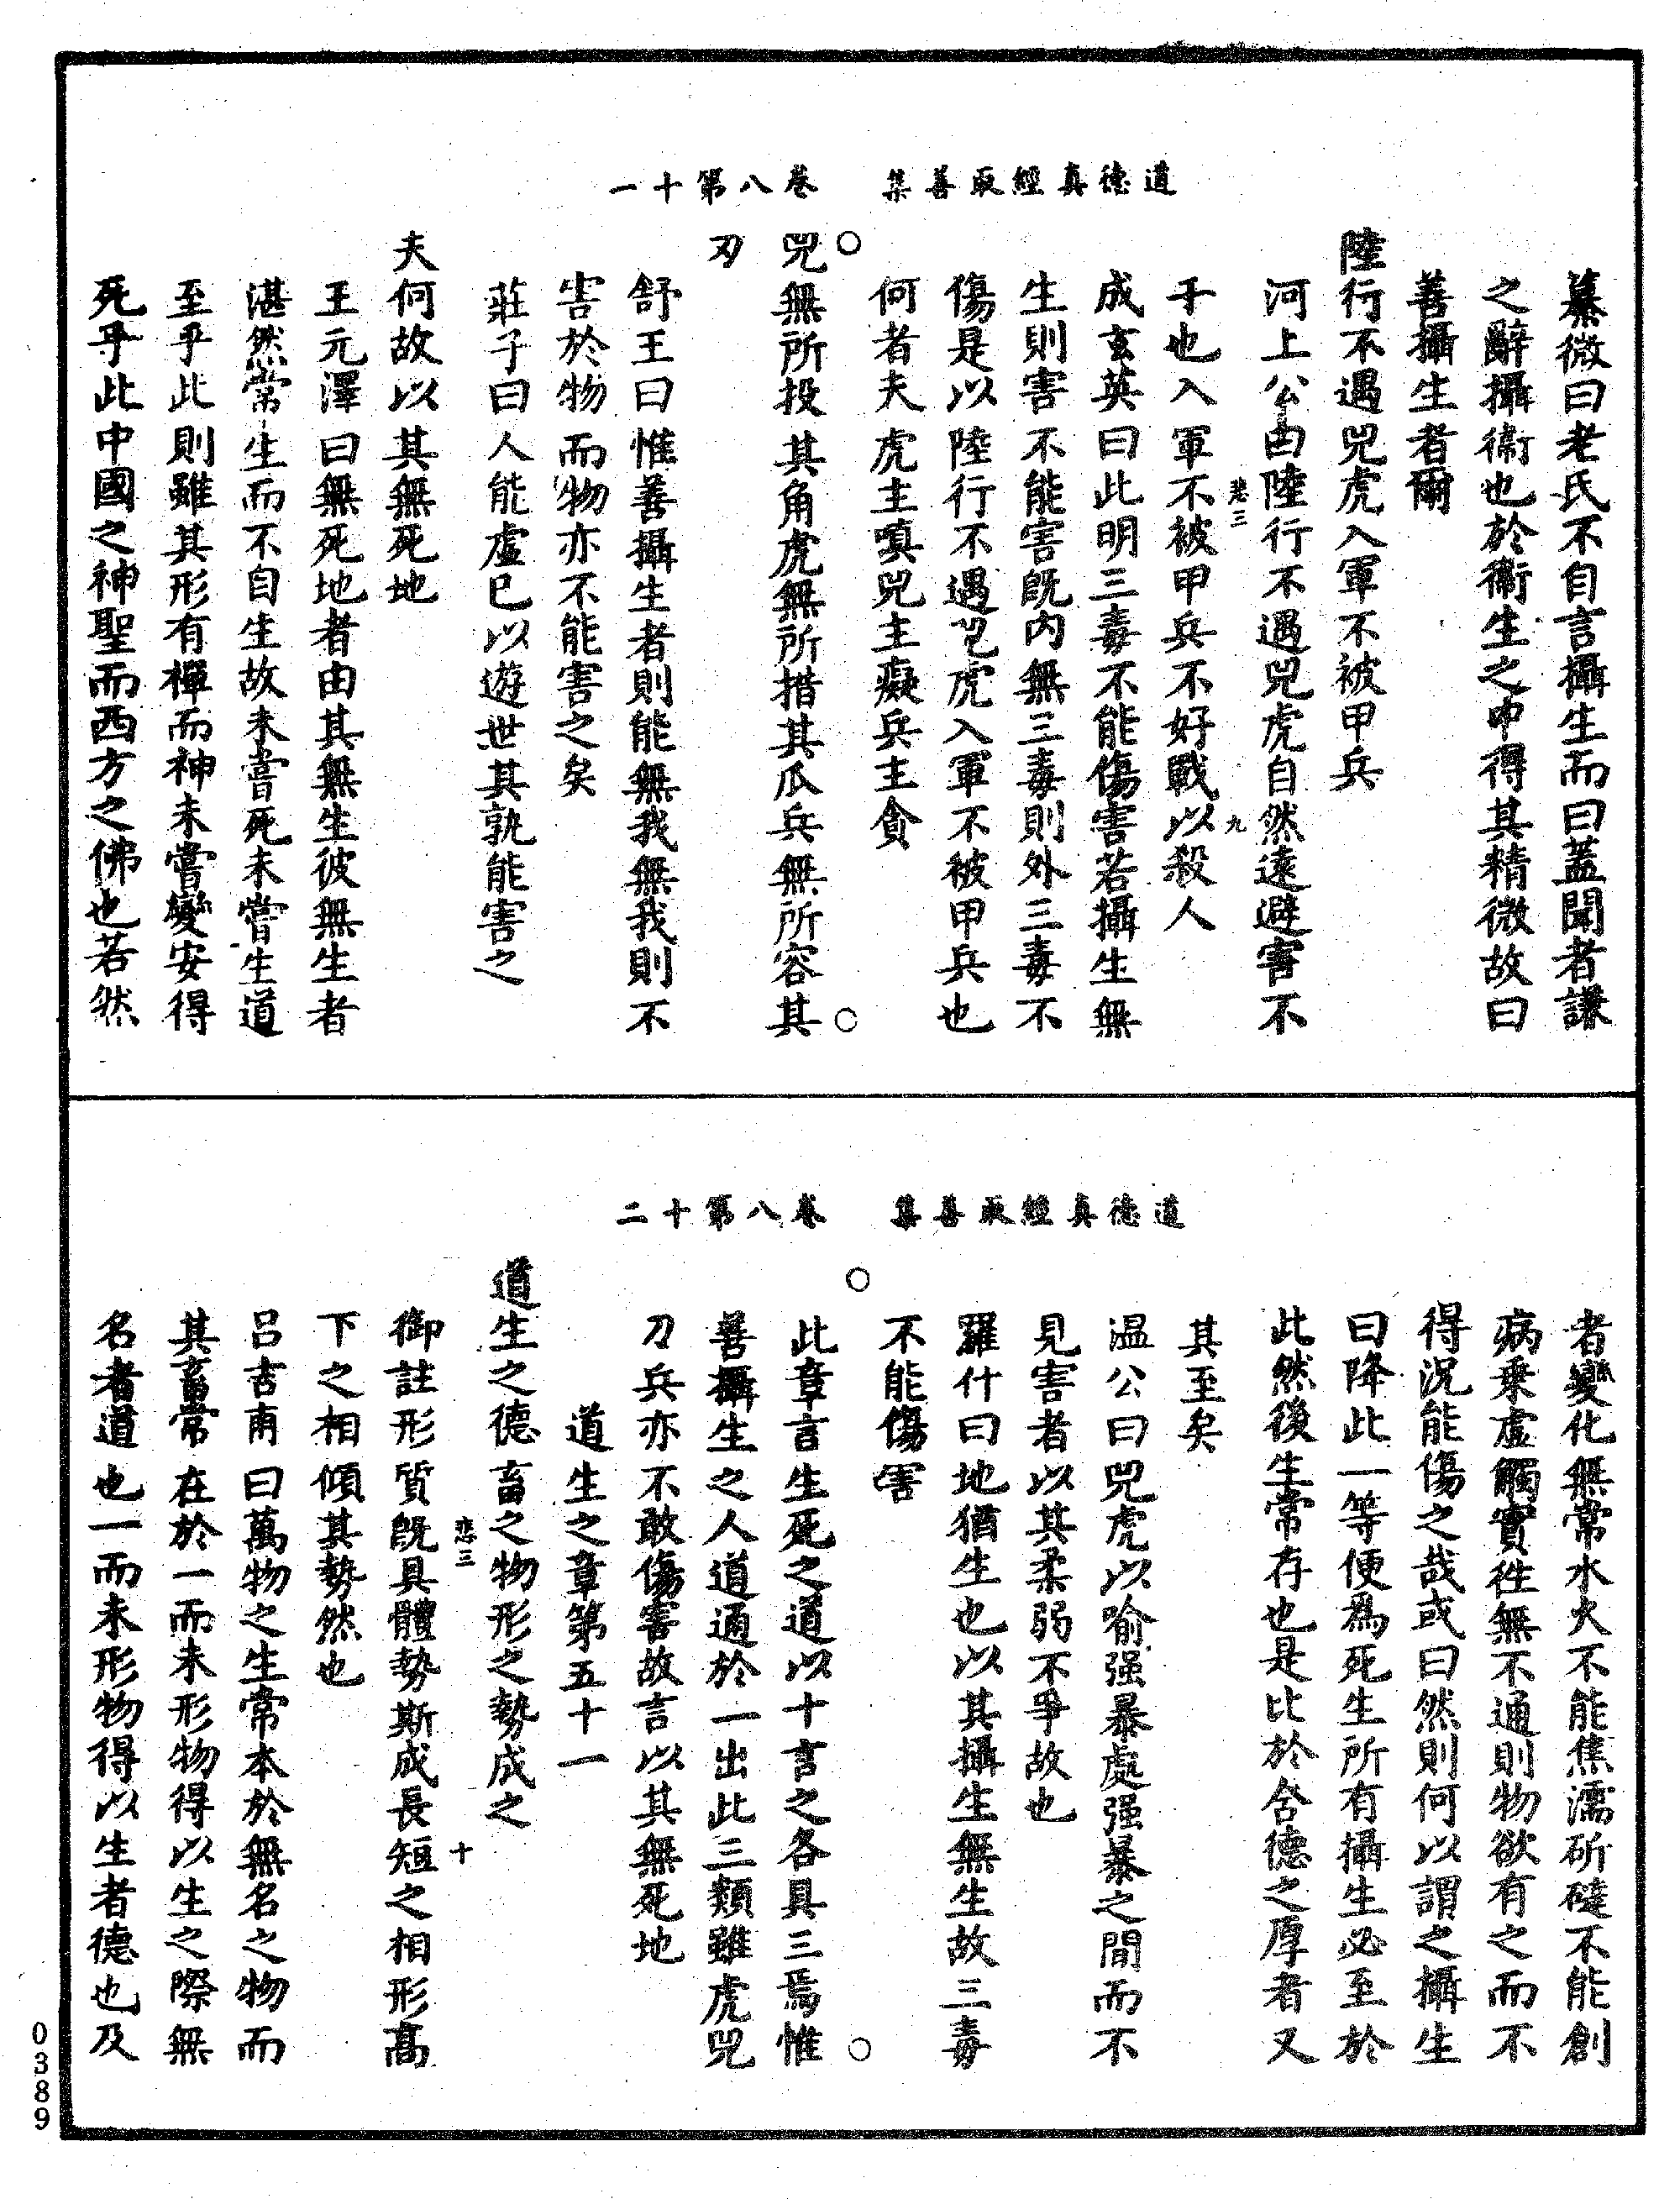 道德真經取善集　卷八第十一
纂微曰老氏不自言攝生而曰蓋聞者謙
之辭攝衞也於衞生之中得其精微故曰
善攝生者爾
陸行不遇兕虎入軍不被甲兵
河上公曰陸行不遇兕虎自然遠避害不
干也入軍不被甲兵不好戰以殺人
悲三　九
成玄英曰此明三毒不能傷害若攝生無
生則害不能害既內無三毒則外三毒不
傷是以陸行不遇兕虎入軍不被甲兵也
何者夫虎主嗔兕主癡兵主貪
兕無所投其角虎無所措其爪兵無所容其
刃
舒王曰惟善攝生者則能無我無我則不
害於物而物亦不能害之矣
莊子曰人能虛己以遊世其孰能害之
夫何故以其無死地
王元澤曰無死地者由其無生彼無生者
湛然常生而不自生故未嘗死未嘗生道
至乎此則雖其形有禪而神未嘗變安得
死乎此中國之神聖而西方之佛也若然
道德真經取善集　卷八第十二
者變化無常水火不能焦濡斫撻不能創
病乘虛觸實往無不通則物欲有之而不
得況能傷之哉或曰然則何以謂之攝生
曰降此一等便為死生所有攝生必至於
此然後生常存也是比於含德之厚者又
其至矣
溫公曰兕虎以喻强暴處强暴之間而不
見害者以其柔弱不爭故也
羅什曰地猶生也以其攝生無生故三毒
不能傷害
此章言生死之道以十言之各具三焉惟
善攝生之人道通於一出此三類雖虎兕
刀兵亦不敢傷害故言以其無死地
道生之章第五十一
道生之德畜之物形之勢成之
悲三　十
御註形質既具體勢斯成長短之相形高
下之相傾其勢然也
呂吉甫曰萬物之生常本於無名之物而
其畜常在於一而未形物得以生之際無
名者道也一而未形物得以生者德也及
0389